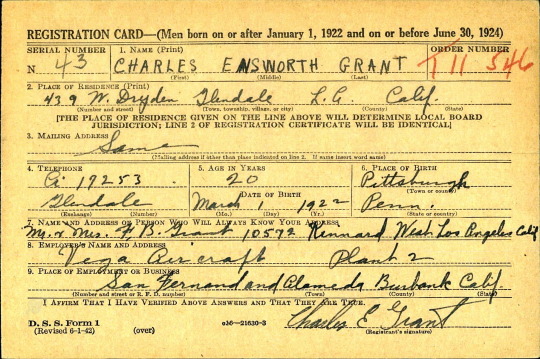 REGISTRATION CARD—(Men born on or after January 1, 1922 and on or before June 30, 1924)
SERIAL NUMBER 1. NAME (Print) ORDER NUMBER
N 43 CHARLES ENSWORTH GRANT T 11 546
(First) (Middle) (Last)
2. PLACE OF RESIDENCE (Print)
439 W. Dryden Glendale L.A. Calif.
(Number and street) (Town, township, village, or city) (County) (State)
[THE PLACE OF RESIDENCE GIVEN ON THE LINE ABOVE WILL DETERMINE LOCAL BOARD
JURISDICTION; LINE 2 OF REGISTRATION CERTIFICATE WILL BE IDENTICAL]
3. MAILING ADDRESS
Same
(Mailing address if other than place indicated on line 2. If same insert word same)
4. TELEPHONE 5. AGE IN YEARS 6. PLACE OF BIRTH
Ci 19253 20 Pittsburgh
(Town or county)
Glendale DATE OF BIRTH
March 1 1922 Penn.
(Exchange) (Number) (Mo.) (Day) (Yr.) (State or country)
7. NAME AND ADDRESS OF PERSON WHO WILL ALWAYS KNOW YOUR ADDRESS
Mr. & Mrs. F. B. Grant 10572 Kennard West Los Angeles Calif
8. EMPLOYER'S NAME AND ADDRESS
Vega Aircraft Plant 2
9. PLACE OF EMPLOYMENT OR BUSINESS
San Fernand and Alameda Burbank Calif.
(Number and street or R. F. D. number) (Town) (County) (State)
I AFFIRM THAT I HAVE VERIFIED ABOVE ANSWERS AND THAT THEY ARE TRUE.
D. S. S. Form 1
(Revised 6-1-42) (over) 16—21630-3 Charles E Grant
(Registrant's signature)